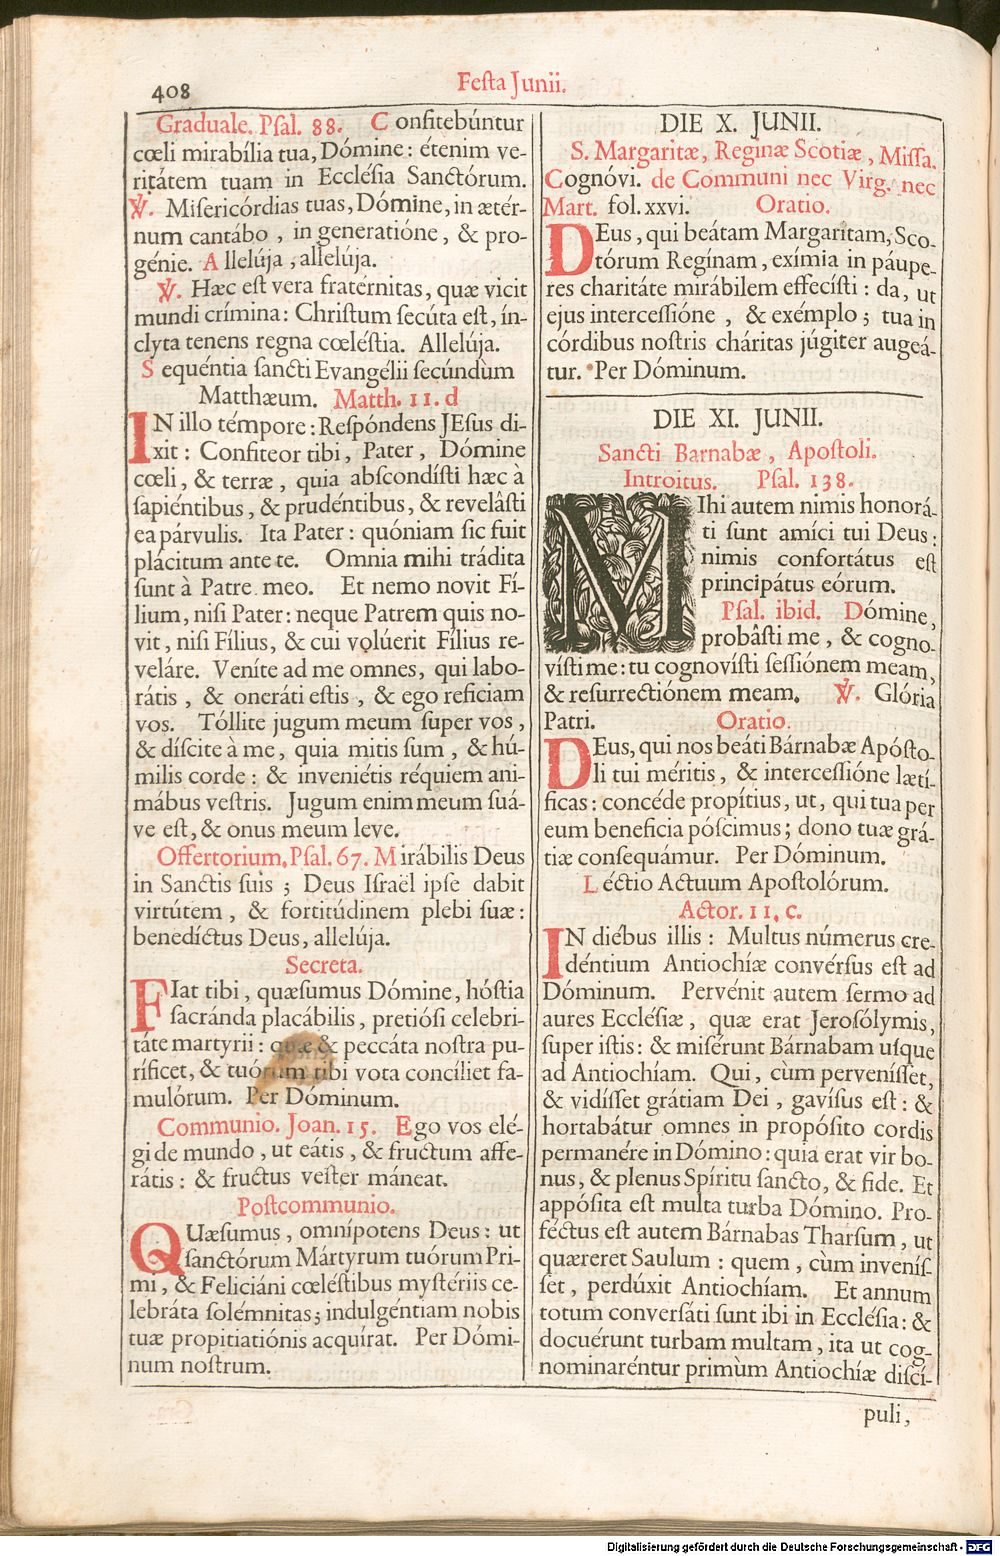 408
Festa Junii.
Graduale. Psal. 88. Confitebúntur
cœli mirabília tua, Dómine: étenim ve-
ritátem tuam in Ecclésia Sanctórum.
℣. Misericórdias tuas, Dómine, in ætér-
num cantábo, in generatióne, & pro-
génie. Allelúja, allelúja.
℣. Hæc est vera fraternitas, quæ vicit
mundi crímina: Christum secúta est, ín-
clyta tenens regna cœléstia. Allelúja.
Sequéntia sancti Evangélii secúndùm
Matthæum. Matth. 11. d
IN illo témpore: Respóndens JEsus di-
xit: Confiteor tibi, Pater, Dómine
cœli, & terræ, quia abscondísti hæc à
sapiéntibus, & prudéntibus, & revelâsti
ea párvulis. Ita Pater: quóniam sic fuit
plácitum ante te. Omnia mihi trádita
sunt à Patre meo. Et nemo novit Fí-
lium, nisi Pater: neque Patrem quis no-
vit, nisi Fílius, & cui volúerit Fílius re-
veláre. Veníte ad me omnes, qui labo-
rátis, & oneráti estis, & ego reficiam
vos. Tóllite jugum meum super vos,
& díscite à me, quia mitis sum, & hú-
milis corde: & inveniétis réquiem ani-
mábus vestris. Jugum enim meum suá-
ve est, & onus meum leve.
Offertorium. Psal. 67. Mirábilis Deus
in Sanctis suis; Deus Israël ipse dabit
virtútem, & fortitúdinem plebi suæ:
benedíctus Deus, allelúja.
Secreta.
FIat tibi, quæsumus Dómine, hóstia
sacránda placábilis, pretiósi celebri-
táte martyrii: quæ & peccáta nostra pu-
ríficet, & tuórum tibi vota concíliet fa-
mulórum. Per Dóminum.
Communio. Joan. 15. Ego vos elé-
gi de mundo, ut eátis, & fructum affe-
rátis: & fructus vester máneat.
Postcommunio.
QUæsumus, omnípotens Deus: ut
sanctórum Mártyrum tuórum Pri-
mi, & Feliciáni cœléstibus mystériis ce-
lebráta solémnitas; indulgéntiam nobis
tuæ propitiatiónis acquírat. Per Dómi-
num nostrum.
DIE X. JUNII.
S. Margaritæ, Reginæ Scotiæ, Missa.
Cognóvi. de Communi nec Virg. nec
Mart. fol. xxvi. Oratio.
DEus, qui beátam Margaritam, Sco-
tórum Regínam, exímia in páupe-
res charitáte mirábilem effecísti: da, ut
ejus intercessióne, & exémplo; tua in
córdibus nostris cháritas júgiter augeá-
tur. Per Dóminum.
DIE XI. JUNII.
Sancti Barnabæ, Apostoli.
Introitus. Psal. 138.
MIhi autem nimis honorá-
ti sunt amíci tui Deus:
nimis confortátus est
principátus eórum.
Psal. ibid. Dómine,
probâsti me, & cogno-
vísti me: tu cognovísti sessiónem meam,
& resurrectiónem meam. ℣. Glória
Patri. Oratio.
DEus, qui nos beáti Bárnabæ Apósto-
li tui méritis, & intercessióne lætí-
ficas: concéde propítius, ut, qui tua per
eum beneficia póscimus; dono tuæ grá-
tiæ consequámur. Per Dóminum.
Léctio Actuum Apostolórum.
Actor. 11. c.
IN diébus illis: Multus númerus cre-
déntium Antiochíæ convérsus est ad
Dóminum. Pervénit autem sermo ad
aures Ecclésiæ, quæ erat Jerosólymis,
super istis: & misérunt Bárnabam usque
ad Antiochíam. Qui, cùm pervenísset,
& vidísset grátiam Dei, gavísus est: &
hortabátur omnes in propósito cordis
permanére in Dómino: quia erat vir bo-
nus, & plenus Spíritu sancto, & fide. Et
appósita est multa turba Dómino. Pro-
féctus est autem Bárnabas Tharsum, ut
quæreret Saulum: quem, cùm invenís-
set, perdúxit Antiochíam. Et annum
totum conversáti sunt ibi in Ecclésia: &
docuérunt turbam multam, ita ut cog-
nominaréntur primùm Antiochíæ discí-
puli,
Digitalisierung gefördert durch die Deutsche Forschungsgemeinschaft - DFG